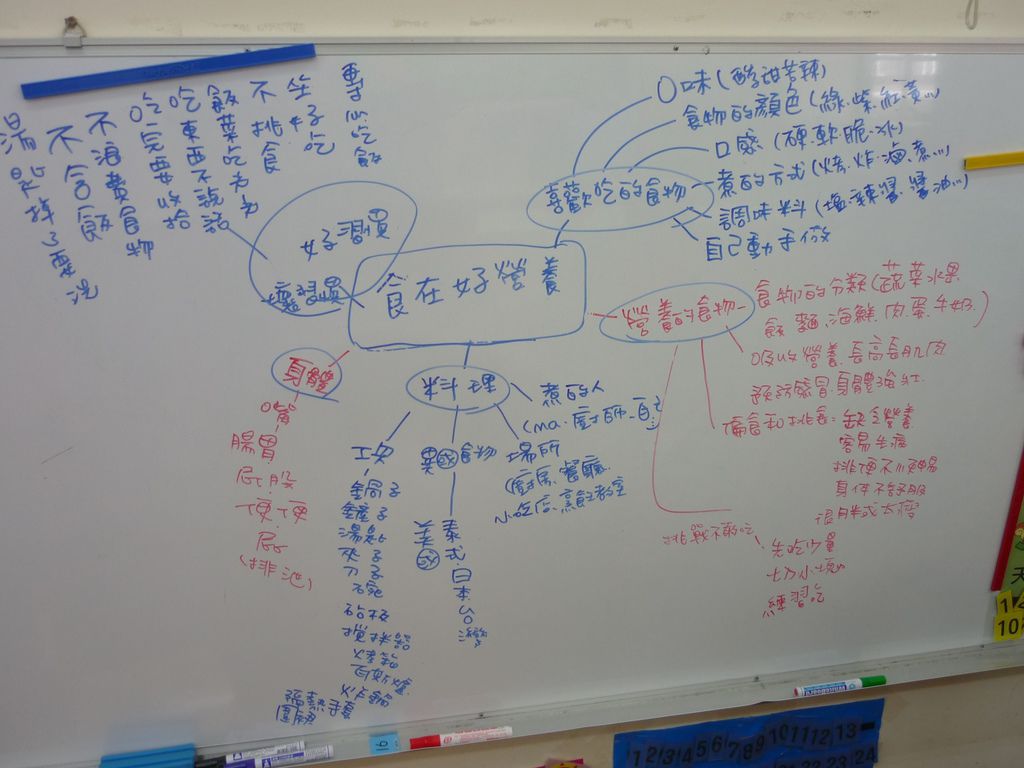 食在好營養
好習慣
壞習慣
專心吃飯
坐好吃
不挑食
飯菜吃光光
吃東西不說話
吃完要收拾
不浪費食物
不含飯
湯匙掉了要洗
喜歡吃的食物
口味(酸甜苦辣)
食物的顏色(綠.紫.紅.黃...)
口感(硬.軟.脆.冰)
煮的方式(烤.炸.滷.煮...)
調味料(塩.辣醬.醬油...)
自己動手做
營養的食物
食物的分類(蔬菜水果
飯.麵.海鮮.肉.蛋.牛奶.)
吸收營養.長高長肌肉
預防感冒.身體強壯
偏食和挑食:缺乏營養
容易生病
排便不順暢
身体不舒服
很胖或太瘦
挑戰不敢吃
先吃少量
切小塊
練習吃
身體
嘴
腸胃
屁股
便便
屁
(排泄)
料理
煮的人
場所
(廚房.餐廳.
小吃店.烹飪教室
異國食物
泰式.日本.台灣
美國
工具
鍋子
鏟子
湯匙
夾子
刀子
碗
砧板
攪拌器
烤箱
瓦斯爐
炸鍋
隔熱手套
圍裙
1 2 3 4 5 6 7 8 9 10 11 12 13
24
10